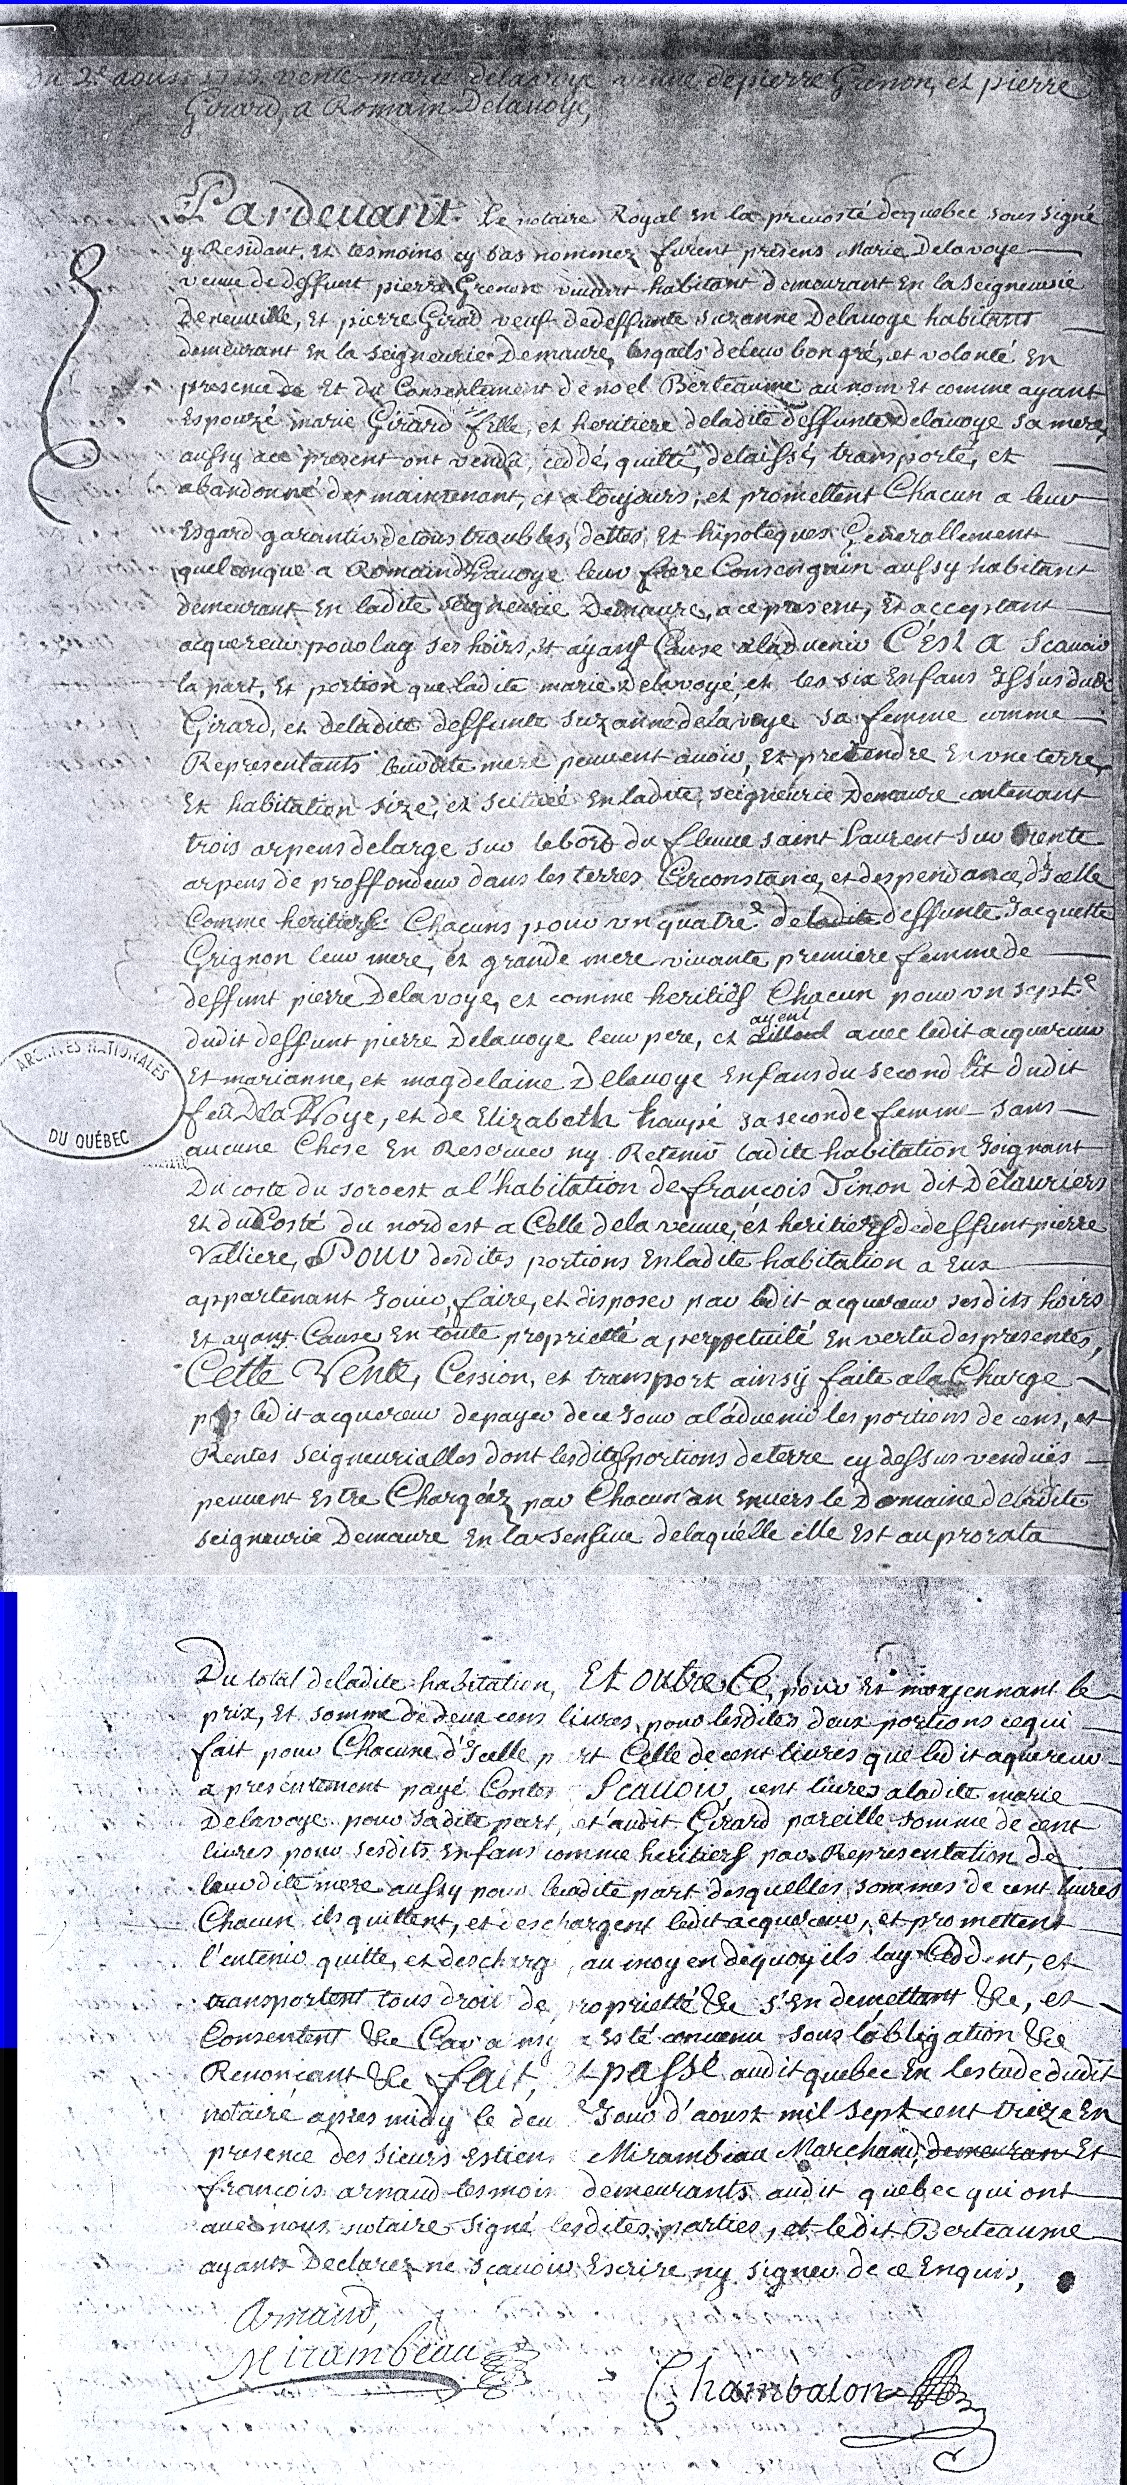 du 2e aoust 1713 vente marie delavoye veuve de pierre Grenon, et pierre
Girard, a Romain Delavoye,
Pardevant Le notaire Royal En la prevosté de quebec sous signé
y Residant, Et tesmoins cy bas nommez furent presens Marie Delavoye
veuve de deffunt pierre Grenon vivant habitant demeurant En la Seigneurie
De neuville, Et pierre Girad veuf de deffunte Suzanne Delavoye habitant
demeurant En la seigneurie Demaure, lesquels de leur bon gré, et volonté En
presence de Et du Consentement de noel Berteaume au nom Et comme ayant
Espouzé marie Girard fille, et heritiere de ladite deffunte delavoye sa mere,
aussy a ce present ont vendu, ceddé, quitté, delaissé, transporté, et
abandonné des maintenant, et a toujours, et promettent Chacun a leur
Esgard garantir de tous troubles, dettes, Et hipoteques Generallement
quelconque a Romain Delavoye leur frere Consenguin aussy habitant
demeurant En ladite seigneurie Demaure, a ce present, Et acceptant
acquereur pour luy ses hoirs, et ayans Cause a l'advenir C'est a Scavoir
la part, Et portion que ladite marie delavoyé, et les six Enfans Issus dudt
Girard, et de ladite deffunte Suzanne delavoye sa femme comme
Representants leurdite mere peuvent avoir, Et pretendre En une terre,
Et habitation size, et scituée En ladite seigneurie Demaure contenant
trois arpens de large sur le bord du fleuve saint Laurent sur trente
arpens de proffondeur dans les terres Circonstance, et despendance, d'Icelle
Comme heritiers Chacuns pour un quatre de ladite deffunte Jacquette
Grignon leur mere, et grande mere vivante premiere femme de
deffunt pierre Delavoye, et comme heritiers Chacun pour un septe
dudit deffunt pierre Delavoye leur pere, et
ayeul
avec ledit acquereur
Et marianne, et magdelaine Delavoye Enfans du second lit dudit
feu De la Voye, et de Elizabeth haupé sa seconde femme sans
aucune Chose En Reserver ny Retenir ladite habitation Joignant
Du coste du soroest a l'habitation de françois Tinon dit Delauriers
Et du Costé du nord est a Celle de la veuve, et heritiers de deffunt pierre
Valliere, Pour desdites portions En ladite habitation a Eux
appartenant Jouir, faire, et disposer par ledit acquereur sesdits hoirs
Et ayans Cause En toute proprietté a perpetuité En vertu des presentes,
Cette Vente, Cession, et transport ainsy faite a la Charge
par ledit acquereur de payer de ce Jour a l'advenir les portions de cens, et
Rentes seigneurialles dont lesdites portions de terre cy dessus vendues
peuvent Estre Chargéez par Chacun an Envers le Domaine de ladite
seigneurie Demaure En la Censive de laquelle elle Est au prorata
Du total de ladite habitation, Et outre Ce, pour Et moyennant le
prix, Et somme de deux cens livres pour lesdites deux portions ce qui
fait pour Chacune d'Icelle part Celle de cent livres que ledit aquereur
a presentement payé Content Scavoir, cent livres a ladite marie
Delavoye pour sadite part, et audit Girard pareille somme de cent
livres pour sesdits Enfans comme heritiers par Representation de
leurdite mere aussy pour leurdite part desquelles sommes de cent livres
Chacun ils quittent, et deschargent ledit acquereur, et promettent
l'entenir quitte, et descharg, au moyen de quoy ils luy Ceddent, et
transportent tous droit de proprietté &c s'En demettant &c, et
Consentent &c Car ainsy a Esté convenu sous l'obligation &c
Renonçant &c fait, Et passé audit quebec En l'estude dudit
notaire apres midy le deu e Jour d'aoust mil sept cent treize En
presence des sieurs Estienne Mirambeau Marchand, demeurant Et
françois arnaud tesmoins demeurants audit quebec qui ont
avec nous notaire signé lesdites parties, et ledit Berteaume
ayans Declarez ne sçavoir Escrire ny signer de ce Enquis,
Arnaud,
Mirambeau
Chambalon
ARCHIVES NATIONALES
DU QUÉBEC